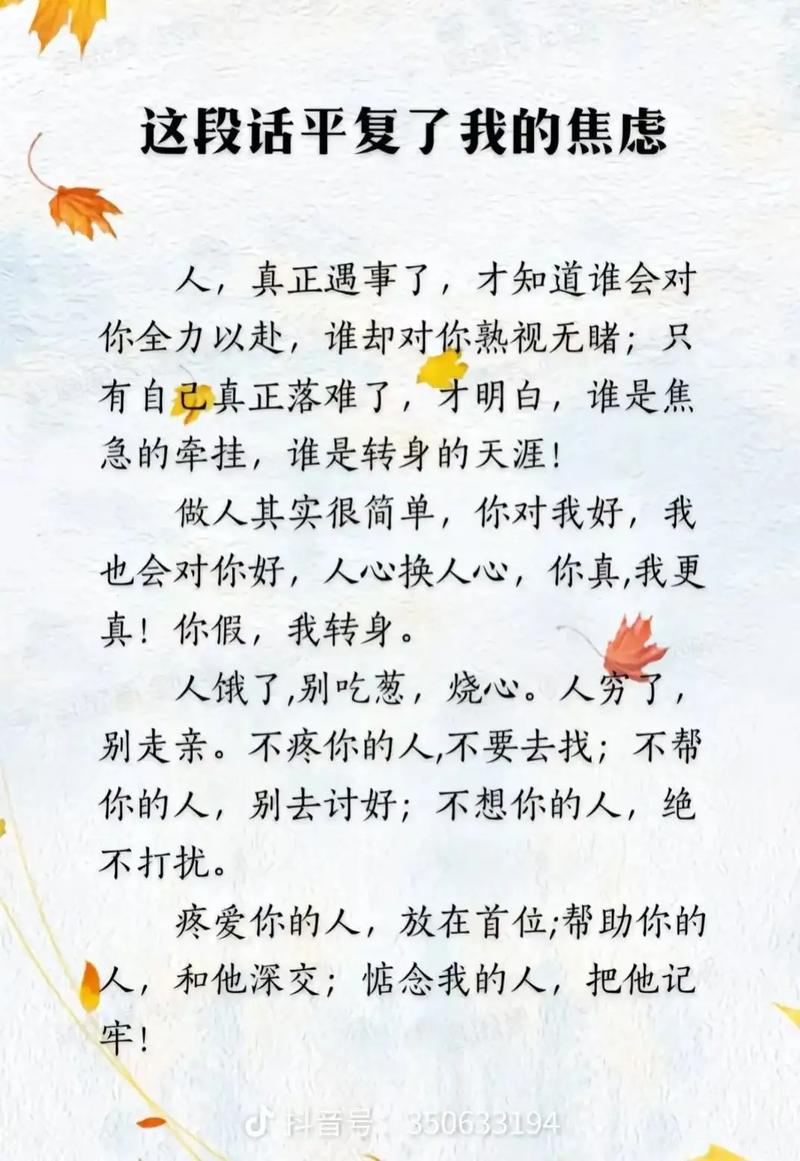 这段话平复了我的焦虑
人，真正遇事了，才知道谁会对
你全力以赴，谁却对你熟视无睹；只
有自己真正落难了，才明白，谁是焦
急的牵挂，谁是转身的天涯！
做人其实很简单，你对我好，我
也会对你好，人心换人心，你真,我更
真！你假，我转身。
人饿了,别吃葱，烧心。人穷了，
别走亲。不疼你的人,不要去找；不帮
你的人，别去讨好；不想你的人，绝
不打扰。
疼爱你的人，放在首位;帮助你的
人，和他深交；惦念我的人，把他记
牢！
抖音号：350633194